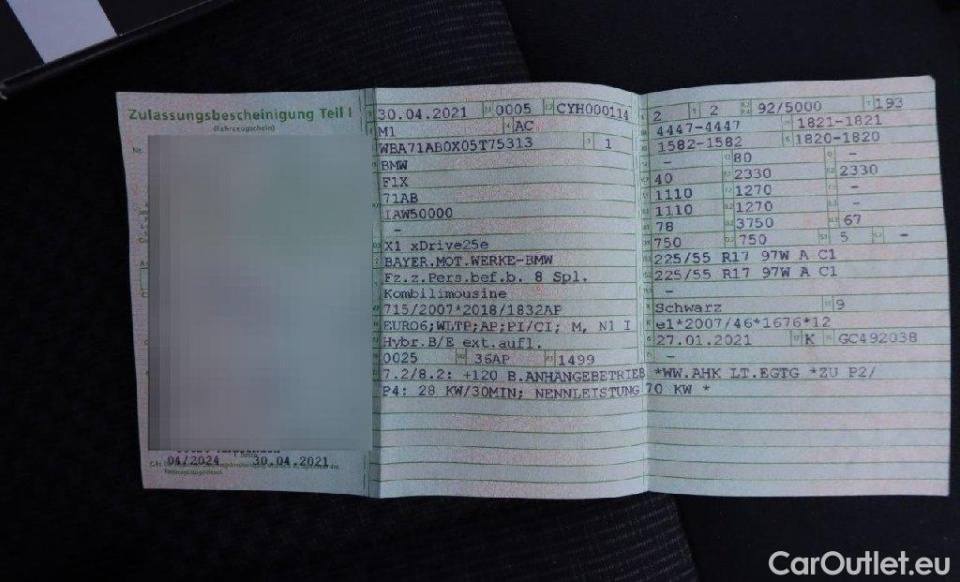 Zulassungsbescheinigung Teil I
(Fahrzeugschein)
Nr.
04/2024 30.04.2021
30.04.2021 0005 CYH000114
M1 AC
WBA71AB0X05T75313 1
BMW
F1X
71AB
IAW50000
-
X1 xDrive25e
BAYER.MOT.WERKE-BMW
Fz.z.Pers.bef.b. 8 Spl.
Kombilimousine
715/2007*2018/1832AP
EURO6;WLTP;AP;PI/CI; M, N1 I
Hybr.B/E ext.aufl.
0025 36AP 1499
7.2/8.2: +120 B.ANHÄNGEBETRIEB *WW.AHK LT.EGTG *ZU P2/
P4: 28 KW/30MIN; NENNLEISTUNG 70 KW *
2 2 92/5000 193
4447-4447 1821-1821
1582-1582 1820-1820
- 80 -
40 2330 2330
1110 1270 -
1110 1270 -
78 3750 67
750 750 5 -
225/55 R17 97W A C1
225/55 R17 97W A C1
-
Schwarz 9
e1*2007/46*1676*12
27.01.2021 K GC492038
-
CarOutlet.eu